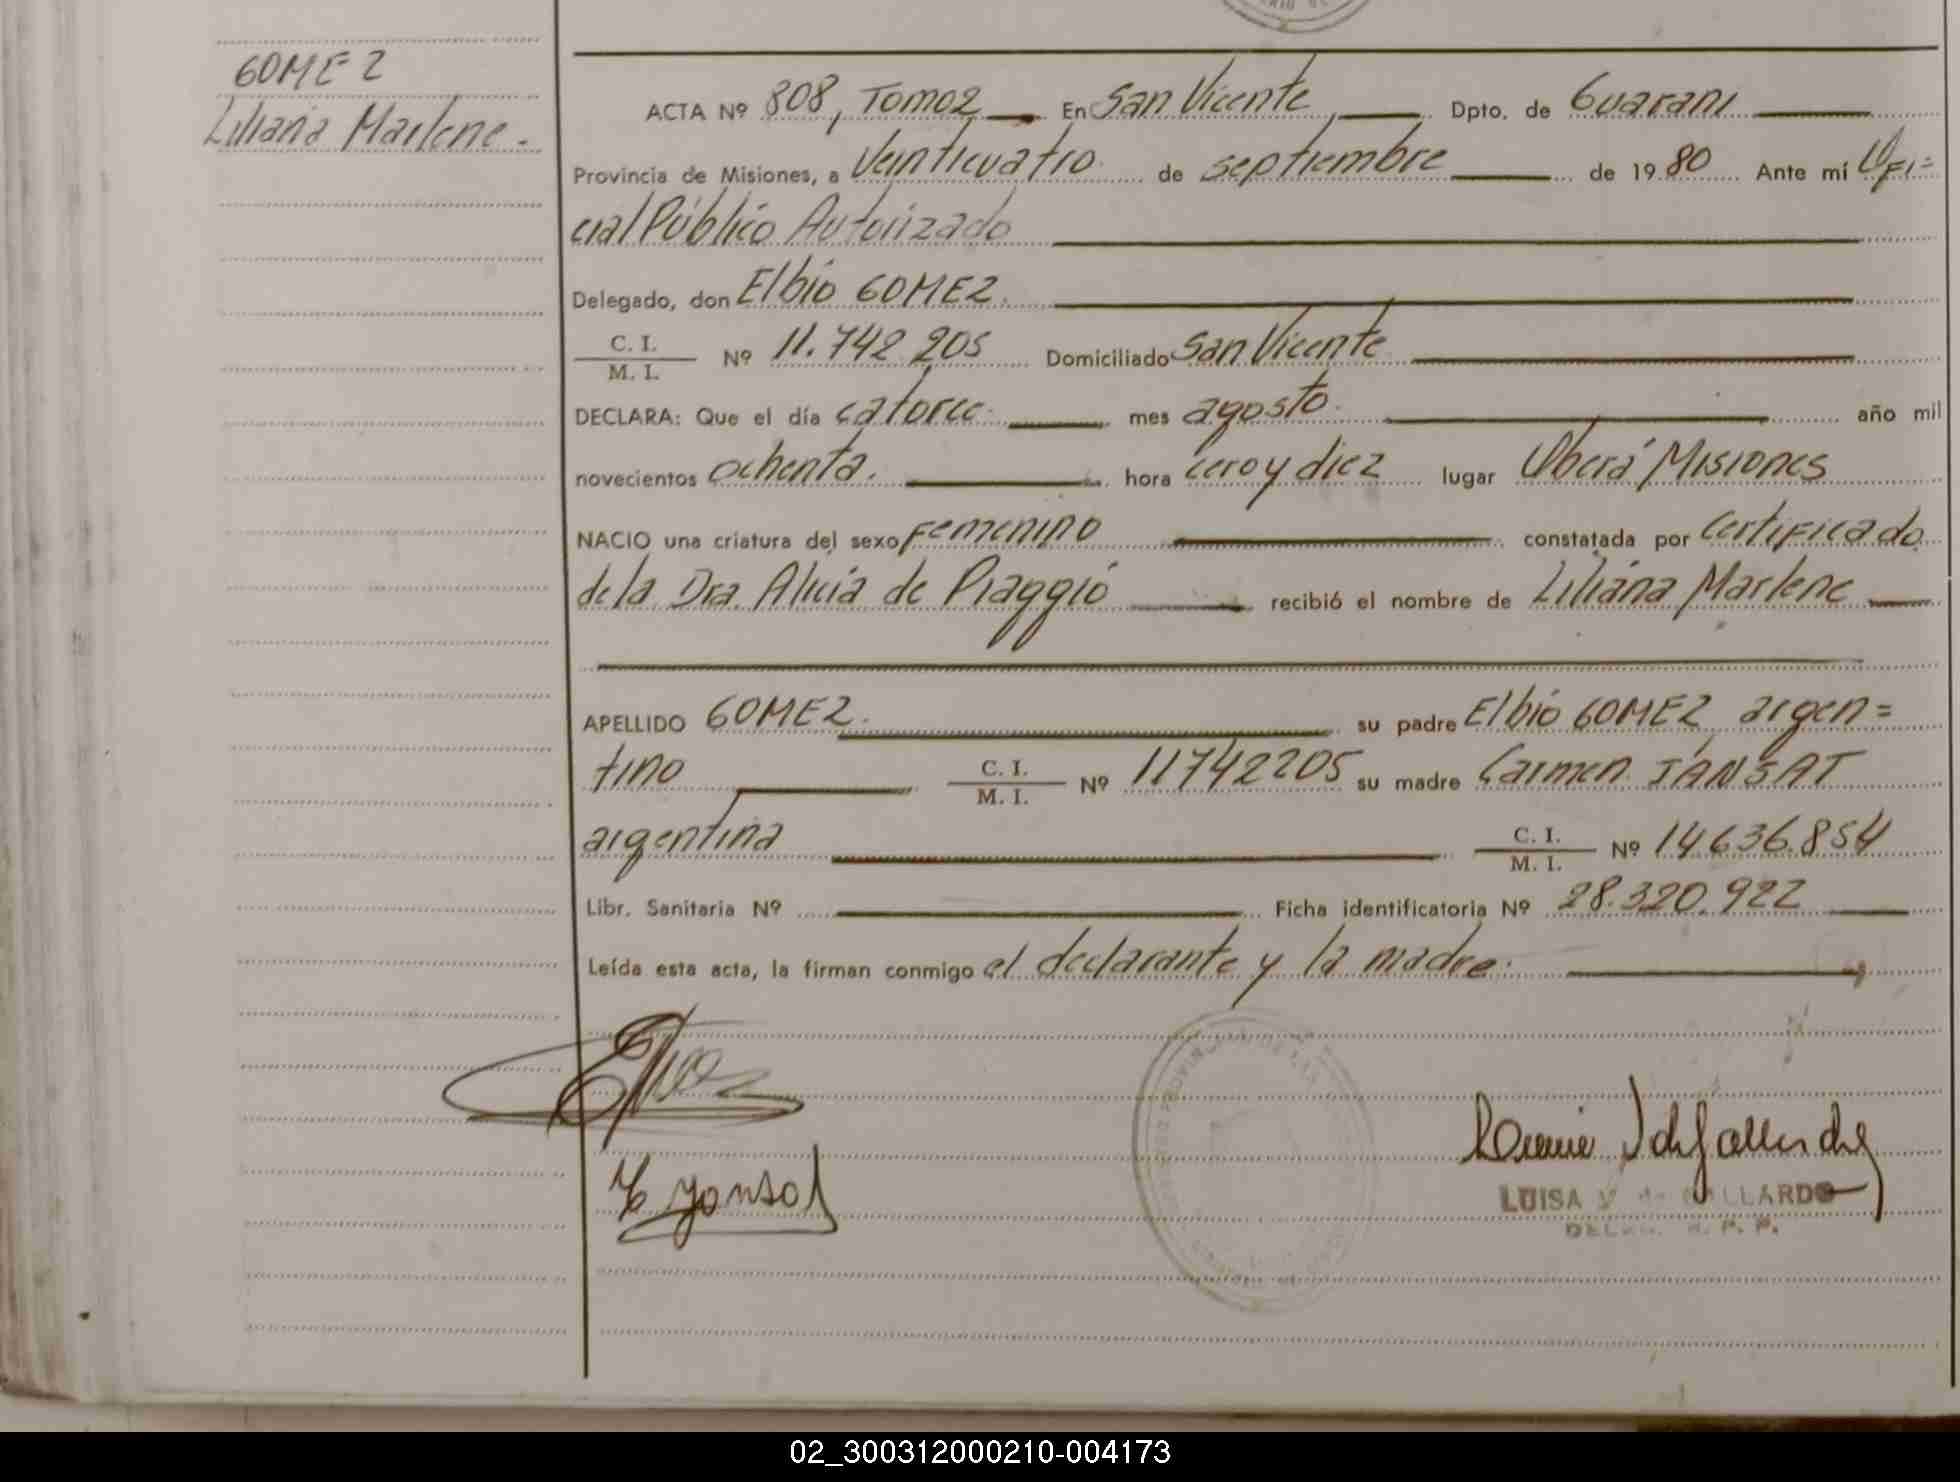 GOMEZ
Liliana Marlene.-
ACTA Nº 808, Tomo 2 En San Vicente Dpto. de Guarani
Provincia de Misiones, a Veinticuatro de septiembre de 1980 Ante mí Ofi=
cial Público Autorizado
Delegado, don Elbio GOMEZ.
C. I.
M. I. Nº 11.742.205 Domiciliado San Vicente
DECLARA: Que el día catorce mes agosto. año mil
novecientos ochenta. hora cero y diez lugar Oberá Misiones
NACIO una criatura del sexo Femenino constatada por Certificado
de la Dra. Alicia de Piaggio recibió el nombre de Liliana Marlene
APELLIDO GOMEZ. su padre Elbio GOMEZ argen=
tino C. I.
M. I. Nº 11742205 su madre Carmen JANSAT
argentina C. I.
M. I. Nº 14.636.854
Libr. Sanitaria Nº Ficha identificatoria Nº 28.320.922
Leída esta acta, la firman conmigo el declarante y la madre.
LUISA V. de GALLARDO
02_300312000210-004173